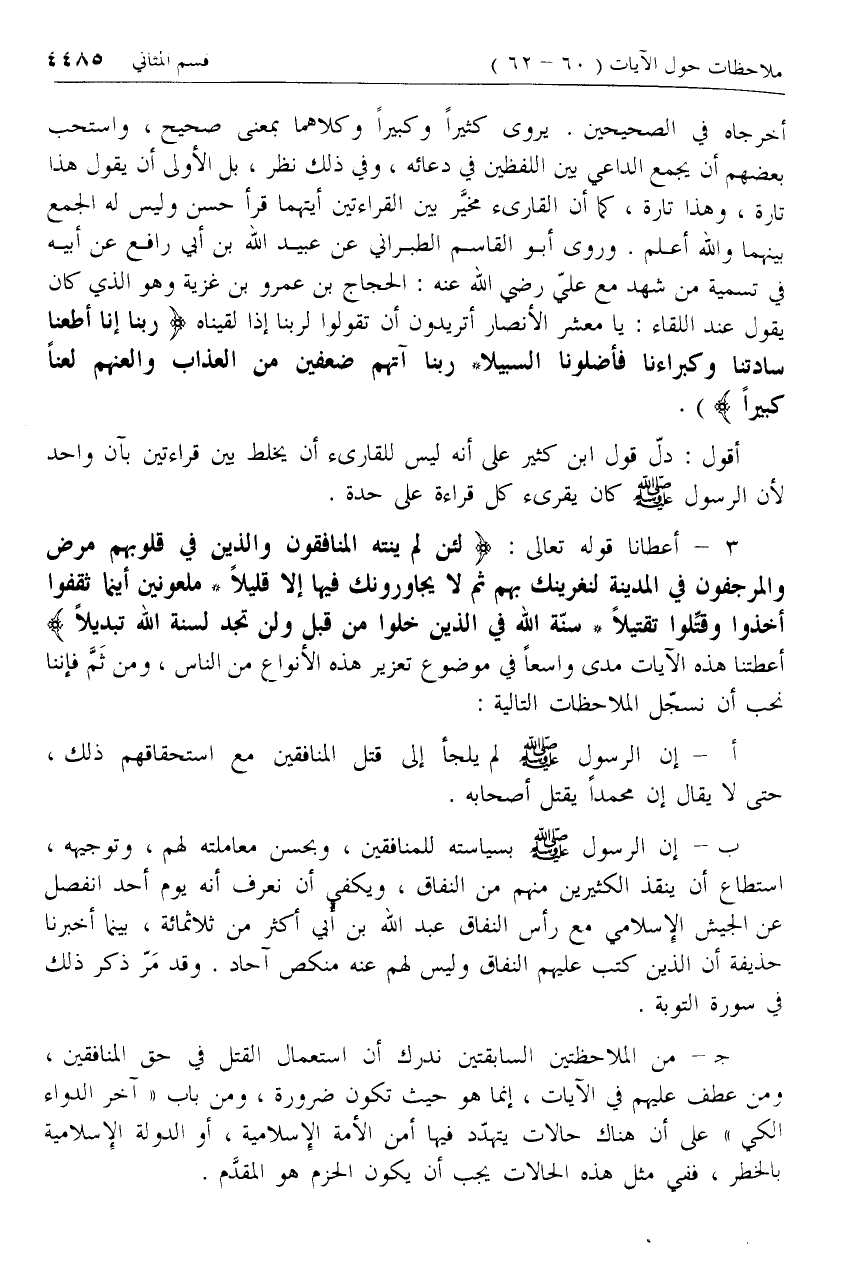 ملاحظات حول الآيات ( ٦٠ - ٦٢ ) قسم المثاني ٤٤٨٥
أخرجاه في الصحيحين . يروى كثيراً وكبيراً وكلاهما بمعنى صحيح ، واستحب
بعضهم أن يجمع الداعي بين اللفظين في دعائه ، وفي ذلك نظر ، بل الأولى أن يقول هذا
تارة ، وهذا تارة ، كما أن القارىء مخيَّر بين القراءتين أيتهما قرأ حسن وليس له الجمع
بينهما والله أعلم . وروى أبو القاسم الطبراني عن عبيد الله بن أبي رافع عن أبيه
في تسمية من شهد مع عليّ رضي الله عنه : الحجاج بن عمرو بن غزية وهو الذي كان
يقول عند اللقاء : يا معشر الأنصار أتريدون أن تقولوا لربنا إذا لقيناه ﴿ ربنا إنا أطعنا
سادتنا وكبراءنا فأضلونا السبيلا* ربنا آتهم ضعفين من العذاب والعنهم لعناً
كبيراً ﴾ ) .
أقول : دلّ قول ابن كثير على أنه ليس للقارىء أن يخلط بين قراءتين بآن واحد
لأن الرسول ﷺ كان يقرىء كل قراءة على حدة .
٣ - أعطانا قوله تعالى : ﴿ لئن لم ينته المنافقون والذين في قلوبهم مرض
والمرجفون في المدينة لنغرينك بهم ثم لا يجاورونك فيها إلا قليلاً * ملعونين أينما ثقفوا
أخذوا وقتِّلوا تقتيلاً * سنّة الله في الذين خلوا من قبل ولن تجد لسنة الله تبديلاً ﴾
أعطتنا هذه الآيات مدى واسعاً في موضوع تعزير هذه الأنواع من الناس ، ومن ثَمَّ فإننا
نحب أن نسجّل الملاحظات التالية :
أ - إن الرسول ﷺ لم يلجأ إلى قتل المنافقين مع استحقاقهم ذلك ،
حتى لا يقال إن محمداً يقتل أصحابه .
ب - إن الرسول ﷺ بسياسته للمنافقين ، وبحسن معاملته لهم ، وتوجيهه ،
استطاع أن ينقذ الكثيرين منهم من النفاق ، ويكفي أن نعرف أنه يوم أحد انفصل
عن الجيش الإسلامي مع رأس النفاق عبد الله بن أُبي أكثر من ثلاثمائة ، بينما أخبرنا
حذيفة أن الذين كتب عليهم النفاق وليس لهم عنه منكص آحاد . وقد مَرّ ذكر ذلك
في سورة التوبة .
جـ - من الملاحظتين السابقتين ندرك أن استعمال القتل في حق المنافقين ،
ومن عطف عليهم في الآيات ، إنما هو حيث تكون ضرورة ، ومن باب « آخر الدواء
الكي » على أن هناك حالات يتهدّد فيها أمن الأمة الإسلامية ، أو الدولة الإسلامية
بالخطر ، ففي مثل هذه الحالات يجب أن يكون الحزم هو المقدَّم .